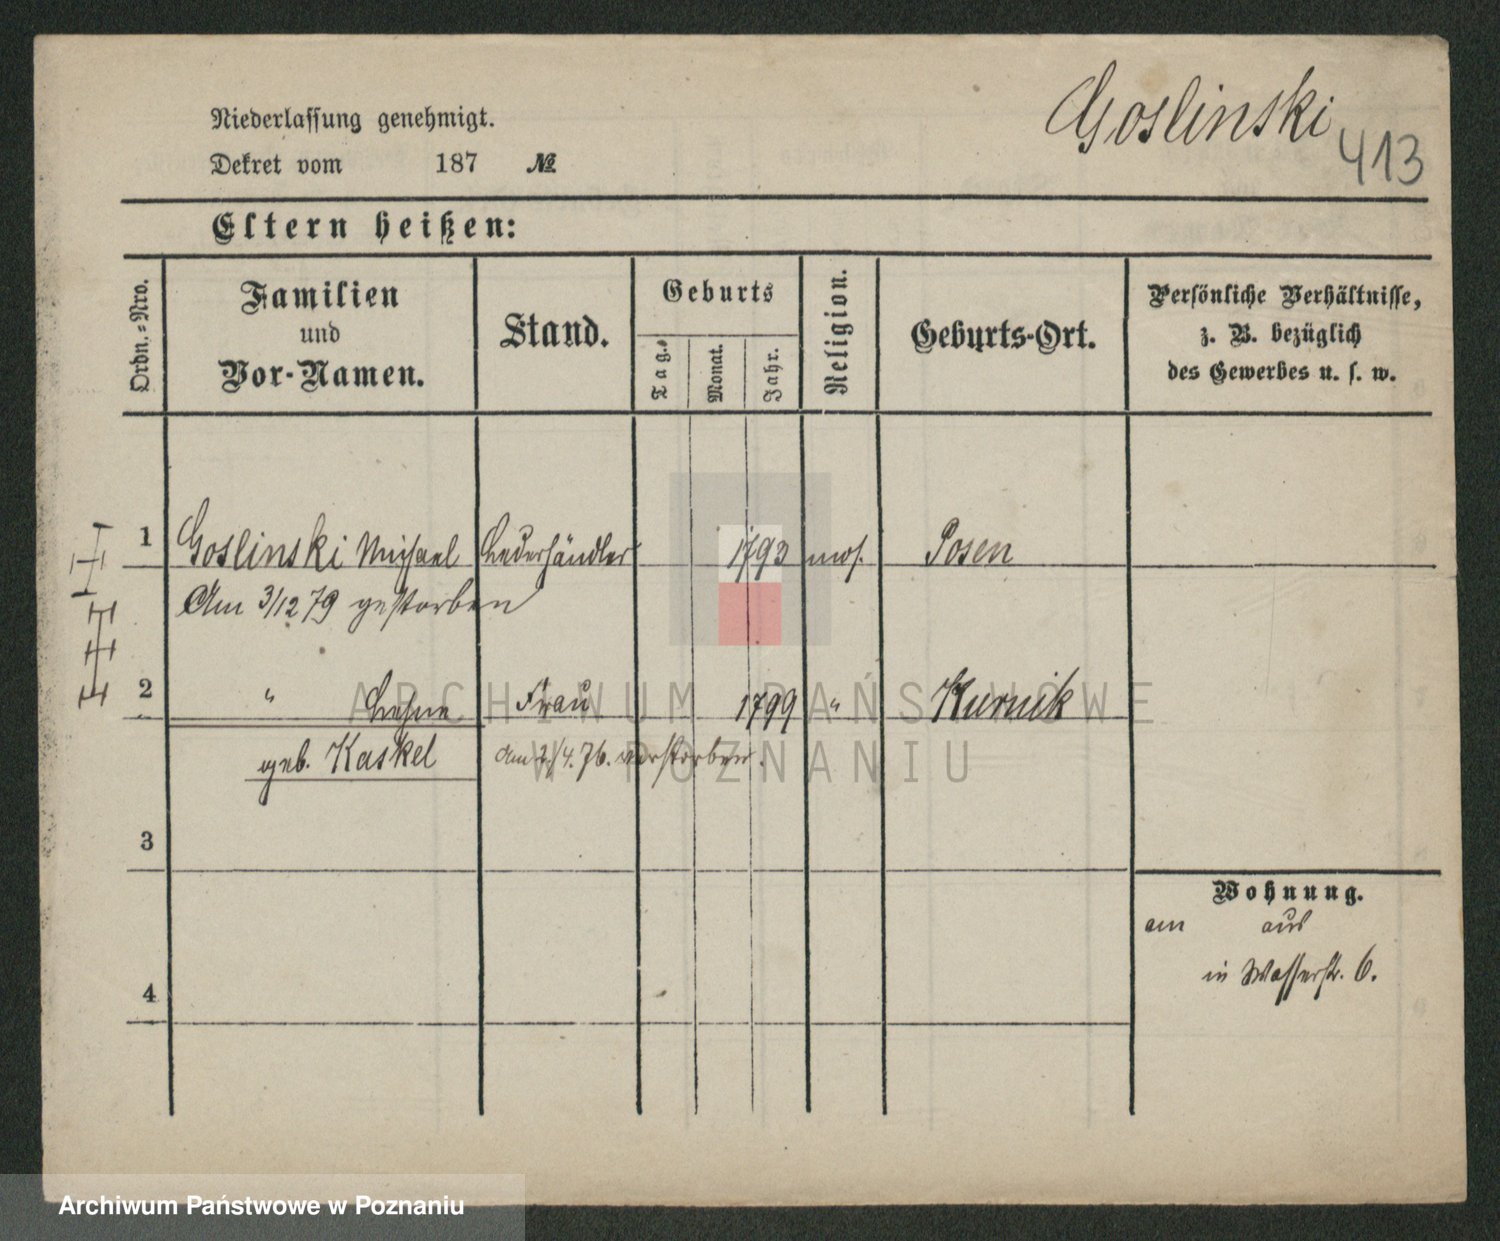 Goslinski
413
Niederlassung genehmigt.
Dekret vom 187 №
Eltern heißen:
Ordn.=Nro.
Familien
und
Vor-Namen.
Stand.
Geburts
Tag.
Monat.
Jahr.
Religion.
Geburts-Ort.
Persönliche Verhältnisse,
z. B. bezüglich
des Gewerbes u. s. w.
1 Goslinski Michael Lederhändler 1793 mos. Posen
Am 3/12 79 gestorben
2 " Frau 1799 " Kurnik
geb. Kaskel am 2/4. 76. verstorben.
3
Wohnung.
am aus
in Wasserstr. 6.
4
ARCHIWUM PAŃSTWOWE
W POZNANIU
Archiwum Państwowe w Poznaniu